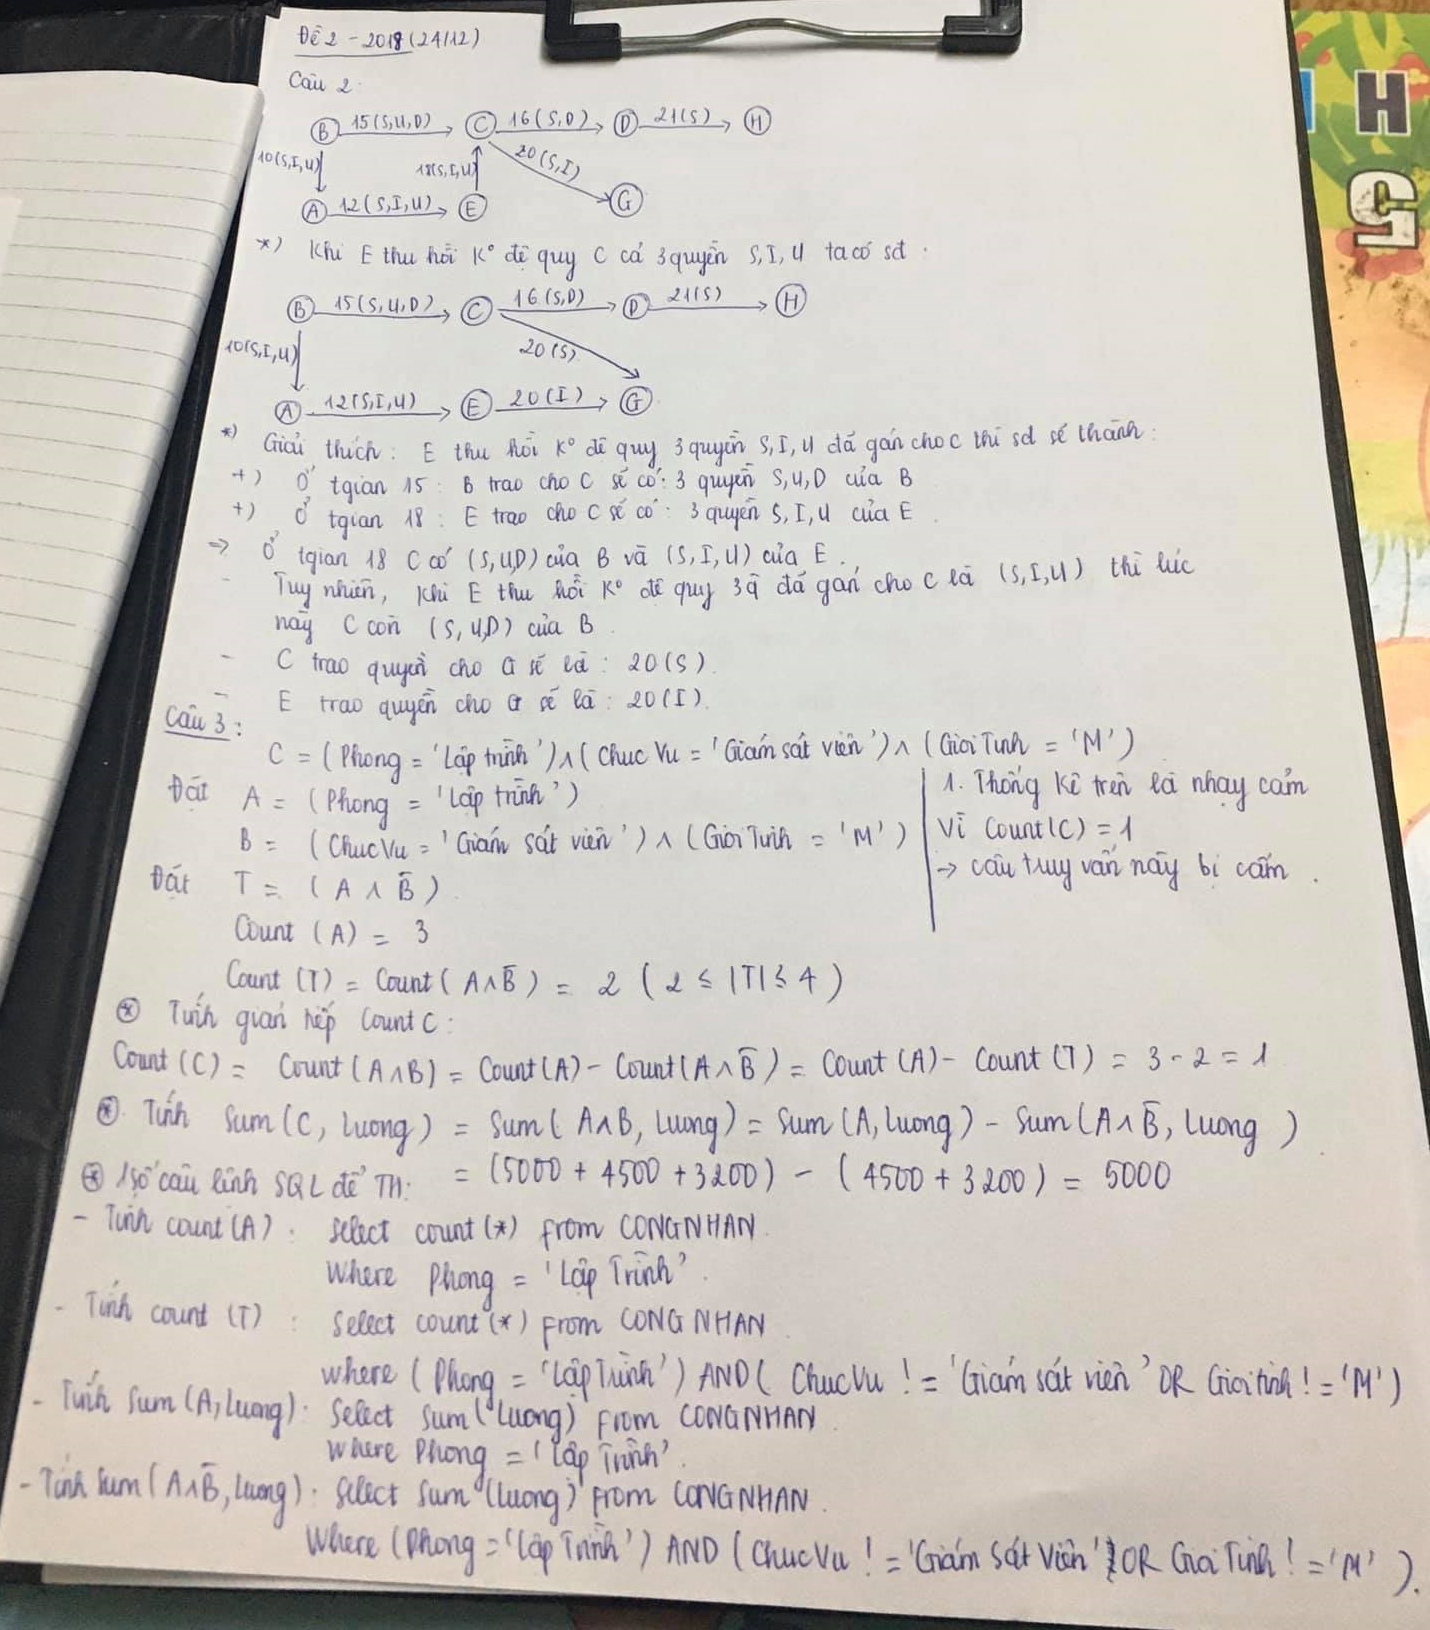 Đề 2 - 2018 (24/12)
Câu 2:
B 15(S,U,D) C 16(S,D) D 21(S) H
10(S,I,U) 18(S,I,U) 20(S,I)
A 12(S,I,U) E G
*) Khi E thu hồi K° đệ quy C cả 3 quyền S,I,U ta có sđ:
B 15(S,U,D) C 16(S,D) D 21(S) H
10(S,I,U) 20(S)
A 12(S,I,U) E 20(I) G
*) Giải thích: E thu hồi K° đệ quy 3 quyền S,I,U đã gán cho C thì sđ sẽ thành:
+) Ở tgian 15: B trao cho C sẽ có: 3 quyền S,U,D của B
+) Ở tgian 18: E trao cho C sẽ có: 3 quyền S,I,U của E.
=> Ở tgian 18 C có (S,U,D) của B và (S,I,U) của E.
- Tuy nhiên, khi E thu hồi K° đệ quy 3q đã gán cho C là (S,I,U) thì lúc
này C còn (S,U,D) của B.
- C trao quyền cho G sẽ là: 20(S).
- E trao quyền cho G sẽ là: 20(I).
Câu 3:
C = (Phong = 'Lập trình') ∧ (Chuc Vu = 'Giám sát viên') ∧ (Gioi Tinh = 'M')
Đặt A = (Phong = 'Lập trình')
B = (ChucVu = 'Giám sát viên') ∧ (Gioi Tinh = 'M')
1. Thống kê trên là nhạy cảm
Vì Count(C) = 1
-> câu truy vấn này bị cấm.
Đặt T = (A ∧ B̄)
Count (A) = 3
Count (T) = Count (A∧B̄) = 2 (2 ≤ |T| ≤ 4)
⊛ Tính gián tiếp Count C:
Count (C) = Count (A∧B) = Count(A) - Count(A∧B̄) = Count (A) - Count (T) = 3 - 2 = 1
⊛ Tính Sum(C, Luong) = Sum(A∧B, Luong) = Sum (A, Luong) - Sum (A∧B̄, Luong)
= (5000 + 4500 + 3200) - (4500 + 3200) = 5000
⊛ 1 số câu lệnh SQL để TH:
- Tính count (A): Select count (*) from CONGNHAN
Where Phong = 'Lập Trình'.
- Tính count (T): Select count (*) from CONGNHAN
where (Phong = 'Lập Trình') AND (ChucVu != 'Giám sát viên' OR Gioi tinh != 'M')
- Tính Sum (A, Luong): Select Sum (Luong) from CONGNHAN
Where Phong = 'Lập Trình'.
- Tính Sum (A∧B̄, Luong): Select Sum (Luong) from CONGNHAN.
Where (Phong = 'Lập Trình') AND (ChucVu != 'Giám Sát Viên' OR Gioi Tinh != 'M').
H
5